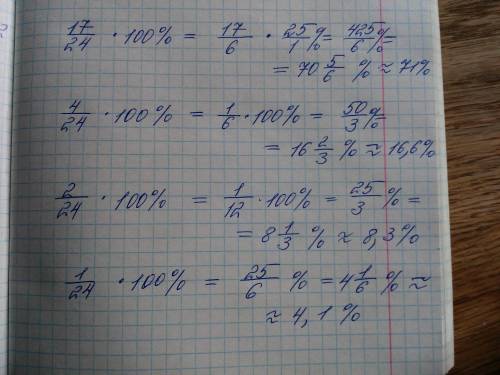 17/24 · 100% = 17/6 · 25/1 % = 425/6 % =
= 70 5/6 % ≈ 71%
4/24 · 100% = 1/6 · 100% = 50/3 % =
= 16 2/3 % ≈ 16,6%
2/24 · 100% = 1/12 · 100% = 25/3 % =
= 8 1/3 % ≈ 8,3%
1/24 · 100% = 25/6 % = 4 1/6 % ≈
≈ 4,1 %